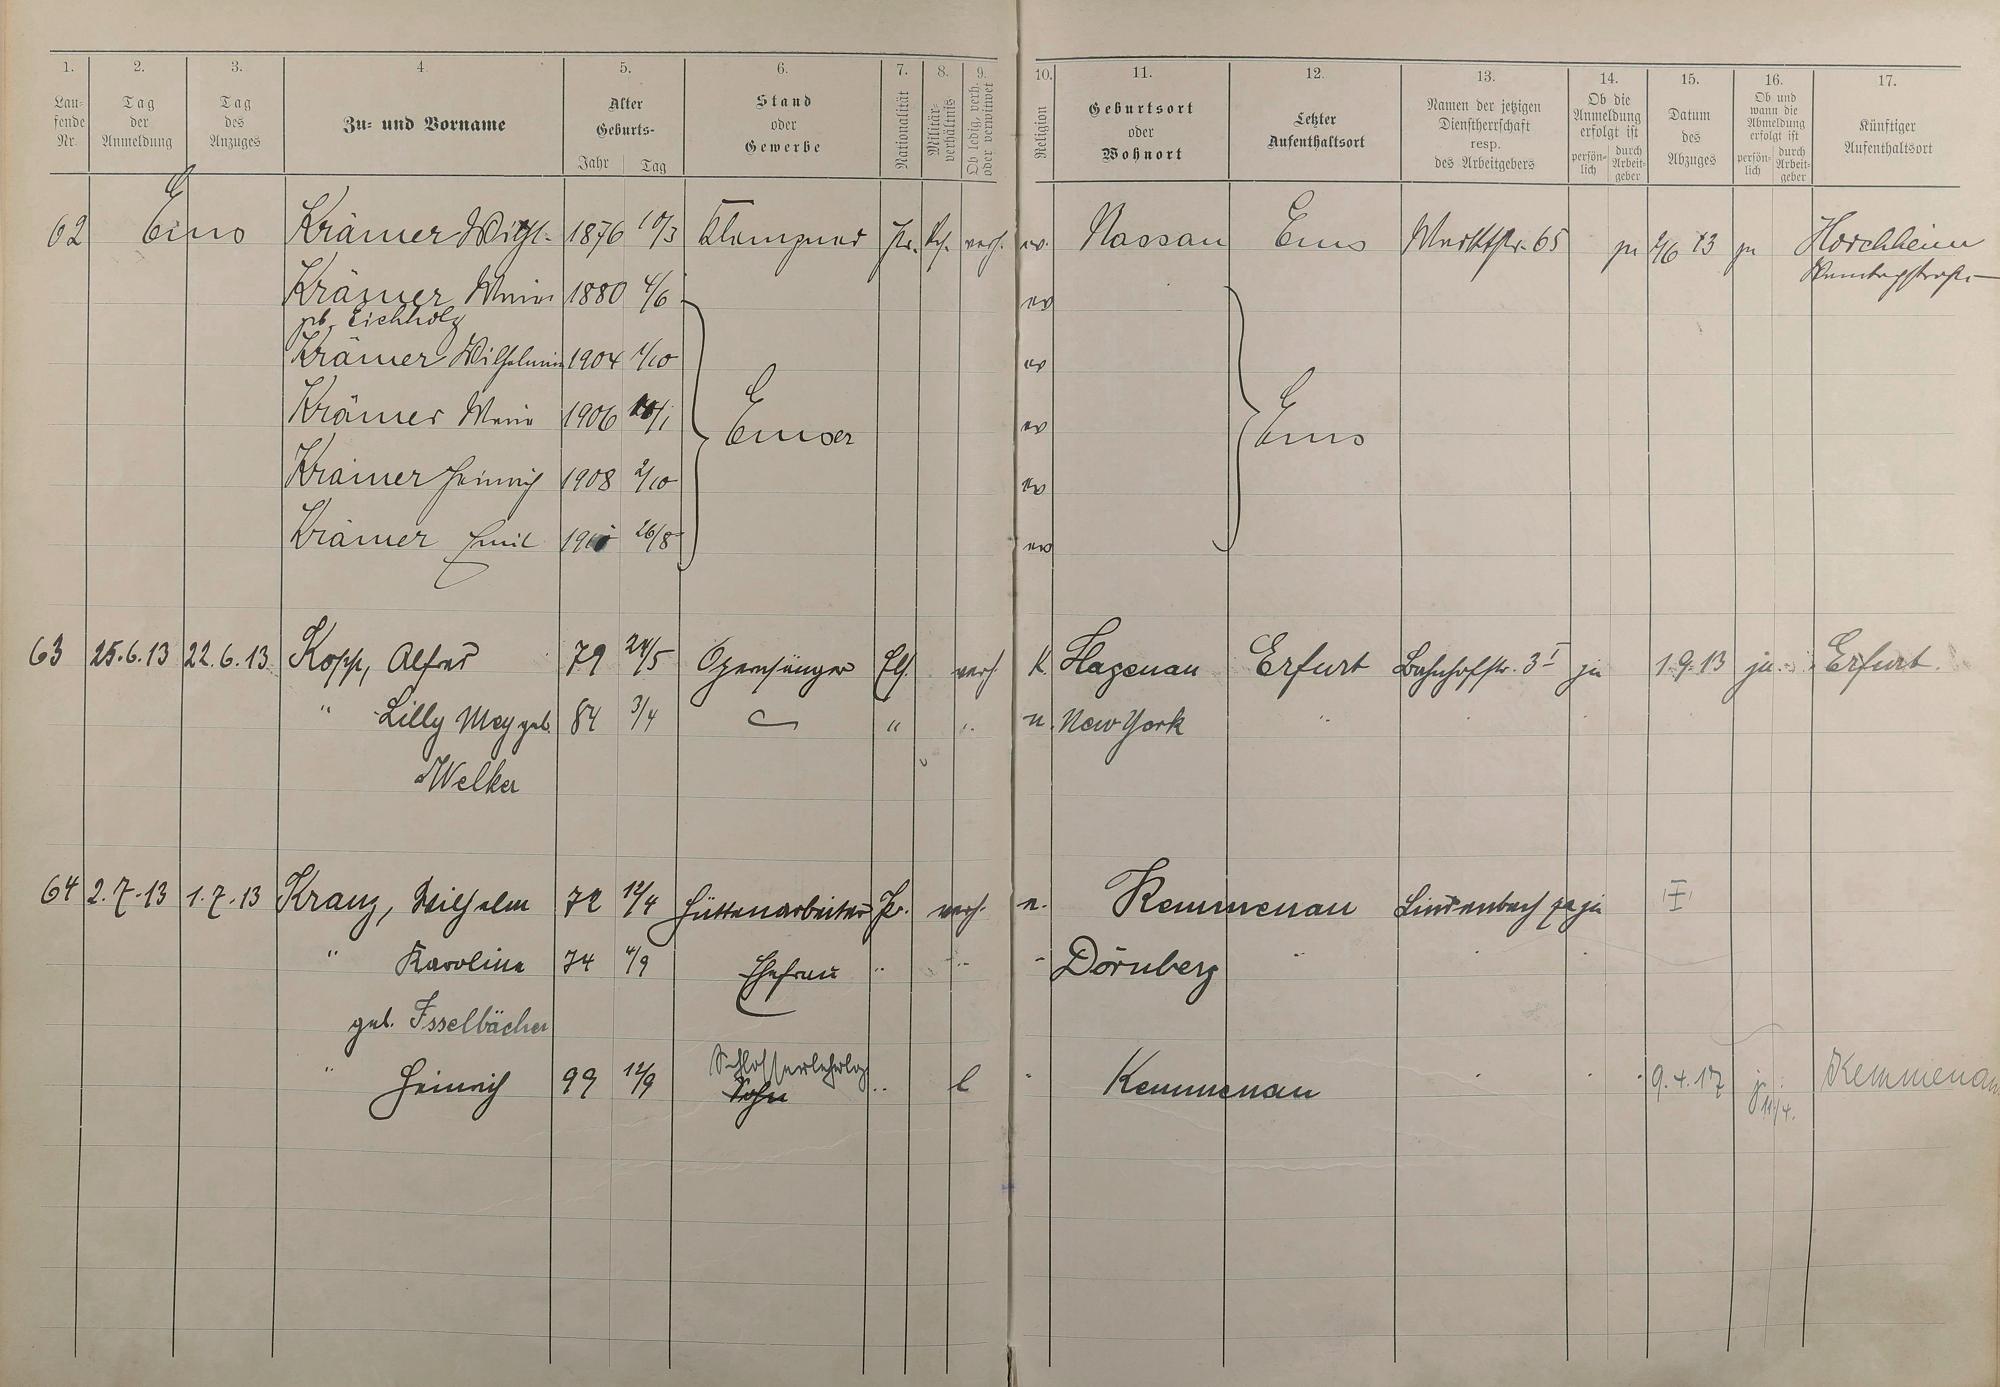 1. 2. 3. 4. 5. 6. 7. 8. 9. 10. 11. 12. 13. 14. 15. 16. 17.
Lau-
fende
Nr.
Tag
der
Anmeldung
Tag
des
Anzuges
Zu- und Vorname
Alter
Geburts-
Jahr Tag
Stand
oder
Gewerbe
Nationalität
Militär-
verhältnis
Ob ledig, verh.
oder verwitwet
Religion
Geburtsort
oder
Wohnort
Letzter
Aufenthaltsort
Namen der jetzigen
Dienstherrschaft
resp.
des Arbeitgebers
Ob die
Anmeldung
erfolgt ist
persön-
lich
durch
Arbeit-
geber
Datum
des
Abzuges
Ob und
wann die
Abmeldung
erfolgt ist
persön-
lich
durch
Arbeit-
geber
Künftiger
Aufenthaltsort
62 Ems Krämer Wilh. 1876 10/3 Klempner Pr. verh. ev. Nassau Ems 65 ja 13 ja Horchheim
Krämer 1880 4/6 ev
geb. Eichholz
Krämer Wilhelmine 1904 1/10 ev
Krämer 1906 ev
Emser Ems
Krämer Heinrich 1908 2/10 ev
Krämer Emil 26/8 ev
63 25.6.13 22.6.13 Kopp, Alfred 79 24/5 Opernsänger Els. verh. K. Hagenau Erfurt Bahnhofstr. 3 I ja 1.9.13 ja Erfurt.
" Lilly Mey geb. 84 3/4 " " New York "
Welker
64 2.7.13 1.7.13 Kranz, Wilhelm 72 12/4 Hüttenarbeiter Pr. verh. e. Kemmenau Lindenbach ja
" Karoline 74 4/9 Ehefrau " " " Dörnberg "
geb. Isselbächer
" Heinrich 99 12/9 Schlosserlehrlg " l " Kemmenau " " 9.4.17 Kemmenau
Sohn 11/4.